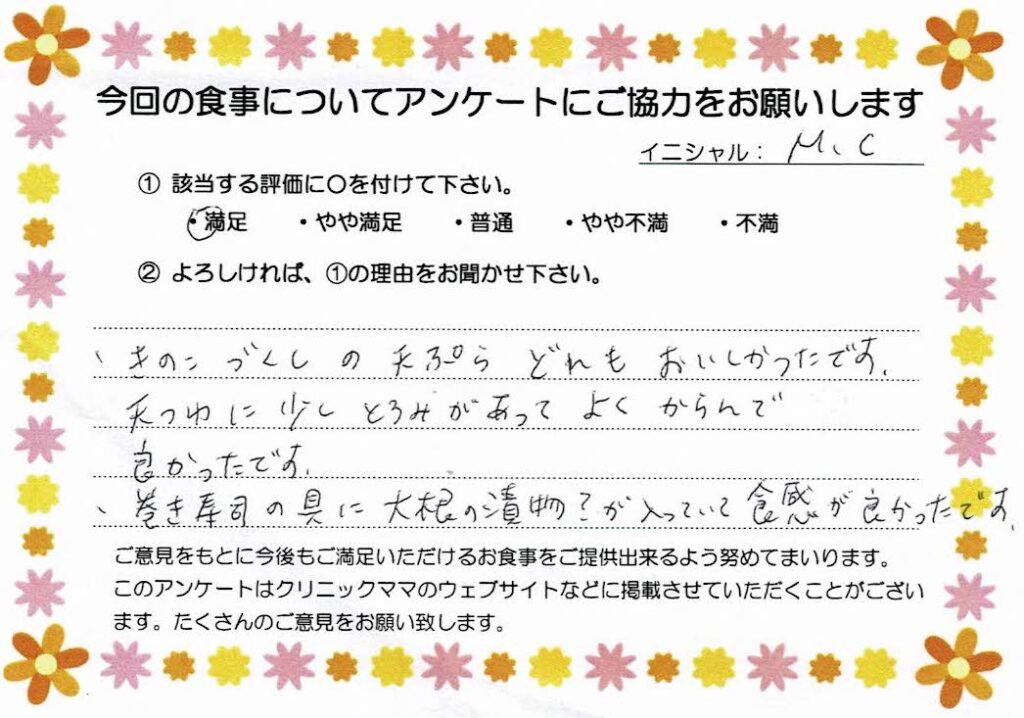 今回の食事についてアンケートにご協力をお願いします
イニシャル： M、C
① 該当する評価に〇を付けて下さい。
・満足 ・やや満足 ・普通 ・やや不満 ・不満
② よろしければ、①の理由をお聞かせ下さい。
、きのこづくしの天ぷらどれもおいしかったです。
天つゆに少しとろみがあってよくからんで
良かったです。
、巻き寿司の具に大根の漬物?が入っていて食感が良かったです。
ご意見をもとに今後もご満足いただけるお食事をご提供出来るよう努めてまいります。
このアンケートはクリニックママのウェブサイトなどに掲載させていただくことがござい
ます。たくさんのご意見をお願い致します。